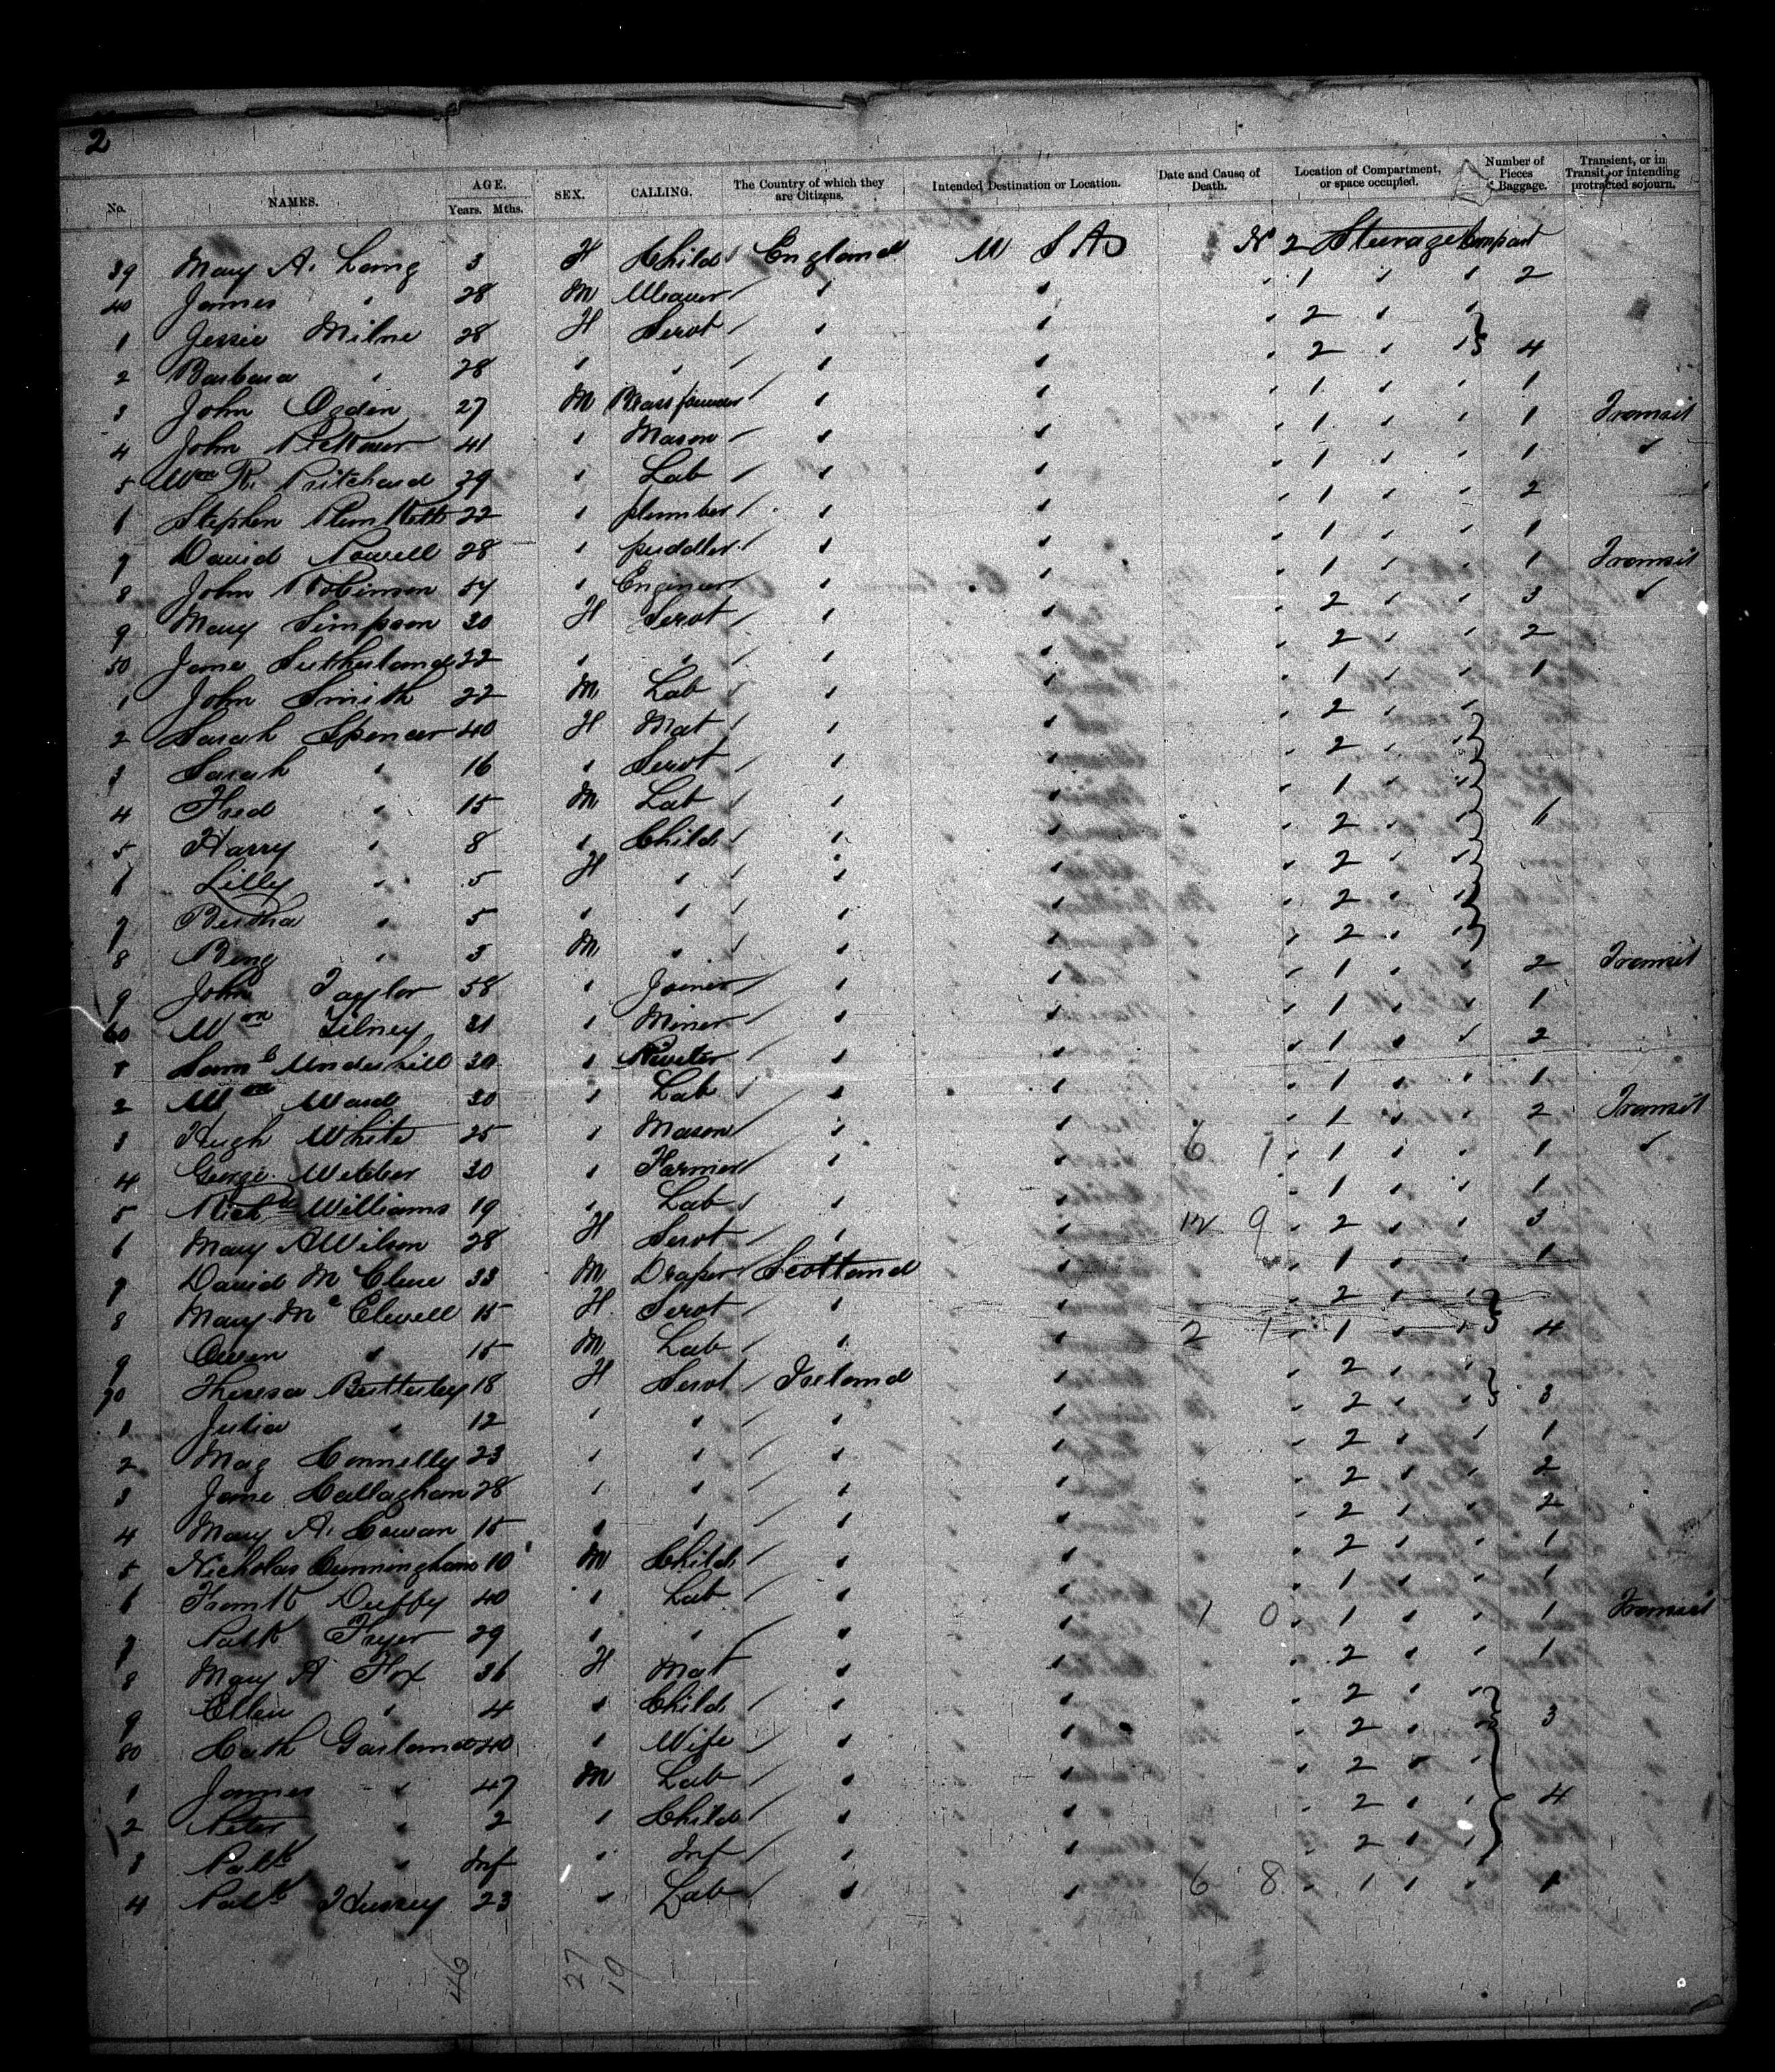 2
No. NAMES. AGE. Years. Mths. SEX. CALLING. The Country of which they are Citizens. Intended Destination or Location. Date and Cause of Death. Location of Compartment, or space occupied. Number of Pieces Baggage. Transient, or in Transit, or intending protracted sojourn.
39 Mary A. Laing 3 F Child England U S A No 2 Sturage Compart
40 James " 28 M Weaver " " " 1 " " 2
1 Jessie Milne 28 F Servt " " " 2 " "
2 Barbara " 28 " " " " " 2 " " 4
3 John Ogden 27 M Brass founder " " " 1 " " 1
4 John 41 " Mason " " " 1 " " 1 Transit
5 Wm R. Pritchard 39 " Lab " " " 1 " " 1 "
6 Stephen 22 " plumber " " " 1 " " 2
7 David Powell 28 " puddler " " " 1 " " 1
8 John Robinson 54 " Engineer " " " 1 " " 1 Transit
9 Mary Simpson 30 F Servt " " " 2 " " 3 "
50 Jane Sutherland 22 " " " " " 2 " " 2
1 John Smith 22 M Lab " " " 1 " " 1
2 Sarah Spencer 40 F Mat " " " 2 " "
3 Sarah " 16 " Servt " " " 2 " "
4 Fred " 15 M Lab " " " 1 " "
5 Harry " 8 " Child " " " 2 " " 6
6 Lilly " 5 F " " " " 2 " "
7 Bertha " 5 " " " " " 2 " "
8 Benj " 3 M " " " " 2 " "
9 John Taylor 58 " Joiner " " " 1 " " 2 Transit
60 Wm Tilney 31 " Miner " " " 1 " " 1
1 Saml Underhill 30 " Riveter " " " 1 " " 2
2 Wm Ward 30 " Lab " " " 1 " " 1
3 Hugh White 25 " Mason " " " 1 " " 2 Transit
4 George Webber 30 " Farmer " " 6 1 " 1 " " 1 "
5 Richd Williams 19 " Lab " " " 1 " " 1
6 Mary A Wilson 28 F Servt " " 12 9 " 2 " " 3
7 David McClure 33 M Draper Scotland " " 1 " " 1
8 Mary McClevell 15 F Servt " " " 2 " "
9 Owen " 15 M Lab " " 2 1 " 1 " " 4
70 Theresa Butterley 18 F Servt Ireland " " 2 " "
1 Julia " 12 " " " " " 2 " " 3
2 Mag Connelly 23 " " " " " 2 " " 1
3 Jane Callaghan 28 " " " " " 2 " " 2
4 Mary A. Cowan 15 " " " " " 2 " " 2
5 Nicholas Cunningham 10 M Child " " " 2 " " 1
6 Frank Duffy 40 " Lab " " " 1 " " 1
7 Patk Fryer 29 " " " " 1 0 " 1 " " 1 Transit
8 Mary A Fox 36 F Mat " " " 2 " " 1
9 Ellen " 4 " Child " " " 2 " "
80 Cath Garland 40 " Wife " " " 2 " " 3
1 James " 47 M Lab " " " 2 " "
2 Peter " 2 " Child " " " 2 " " 4
3 Patk " Inf " Inf " " " 2 " "
4 Patk Hussey 23 " Lab " " 6 8 " 1 " " 1
46 27 19